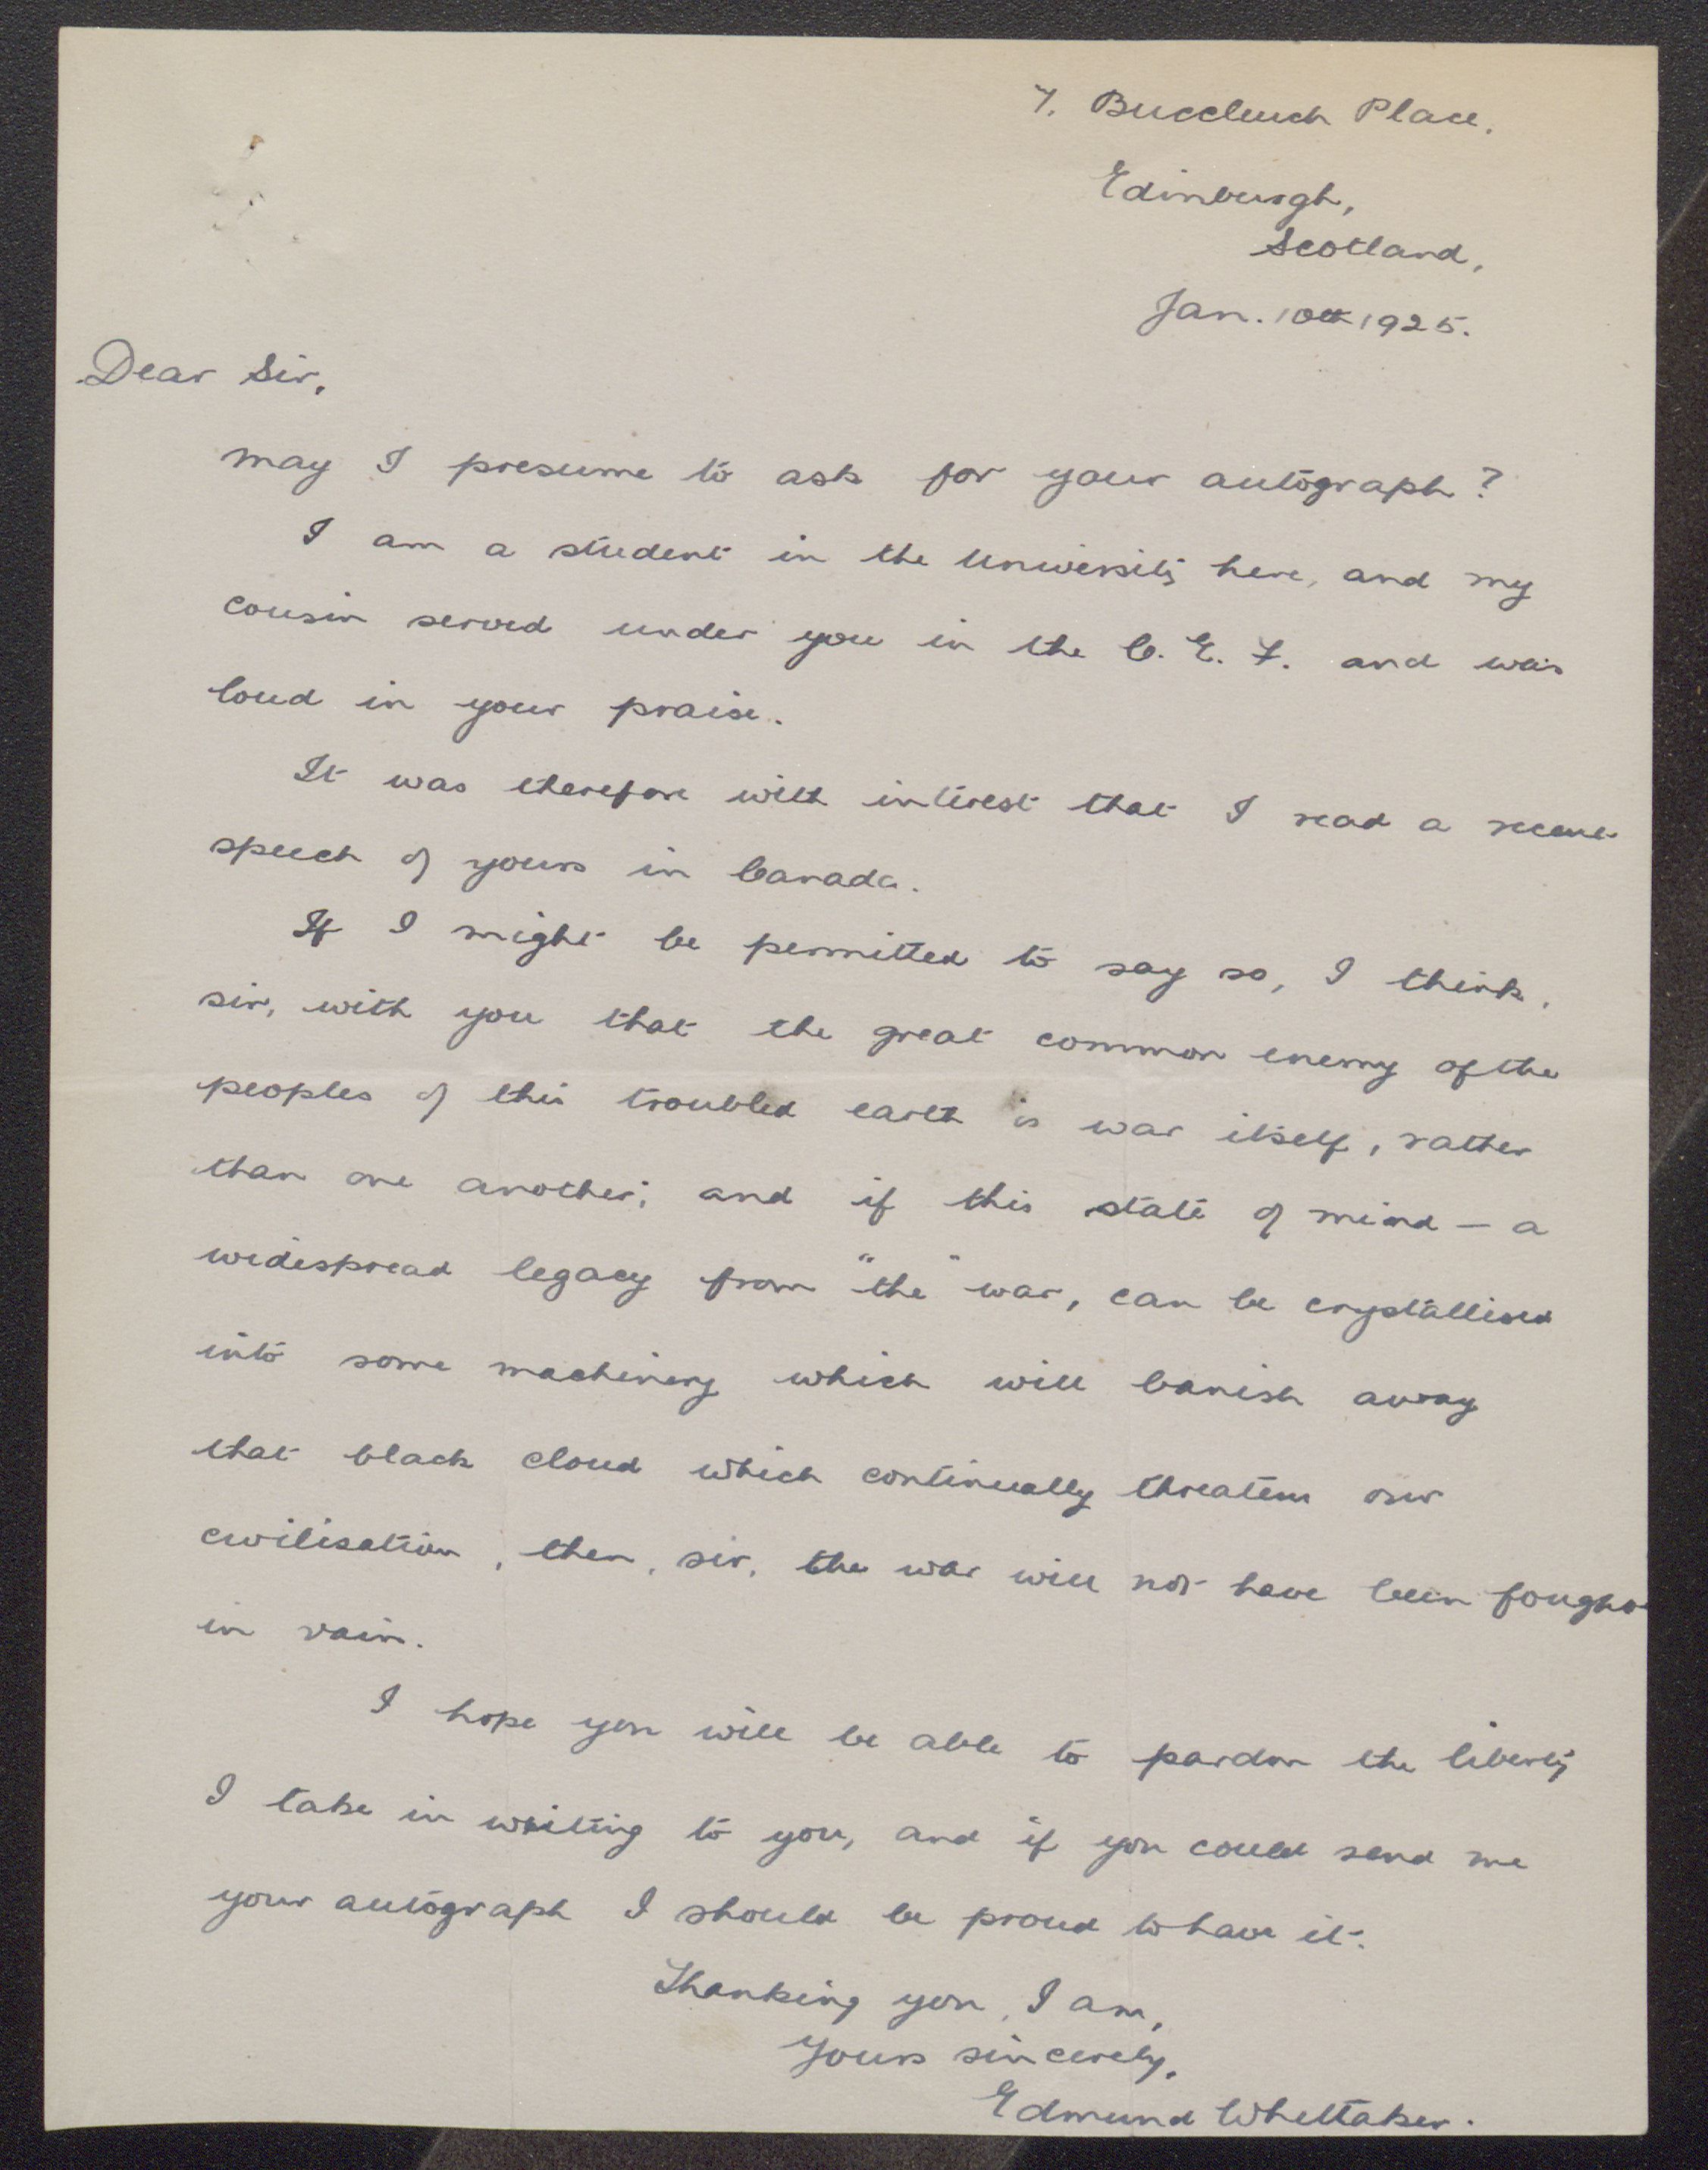 7. Buccleuch Place,
Edinburgh,
Scotland,
Jan. 10th 1925.
Dear Sir,
May I presume to ask for your autograph?
I am a student in the University here, and my
cousin served under you in the C. E. F. and was
loud in your praise.
It was therefore with interest that I read a recent
speech of yours in Canada.
If I might be permitted to say so, I think,
sir, with you that the great common enemy of the
peoples of this troubled earth is war itself, rather
than one another; and if this state of mind — a
widespread legacy from "the" war, can be crystallised
into some machinery which will banish away
that black cloud which continually threatens our
civilisation, then, sir, the war will not have been fought
in vain.
I hope you will be able to pardon the liberty
I take in writing to you, and if you could send me
your autograph I should be proud to have it.
Thanking you, I am,
Yours sincerely,
Edmund Whittaker.